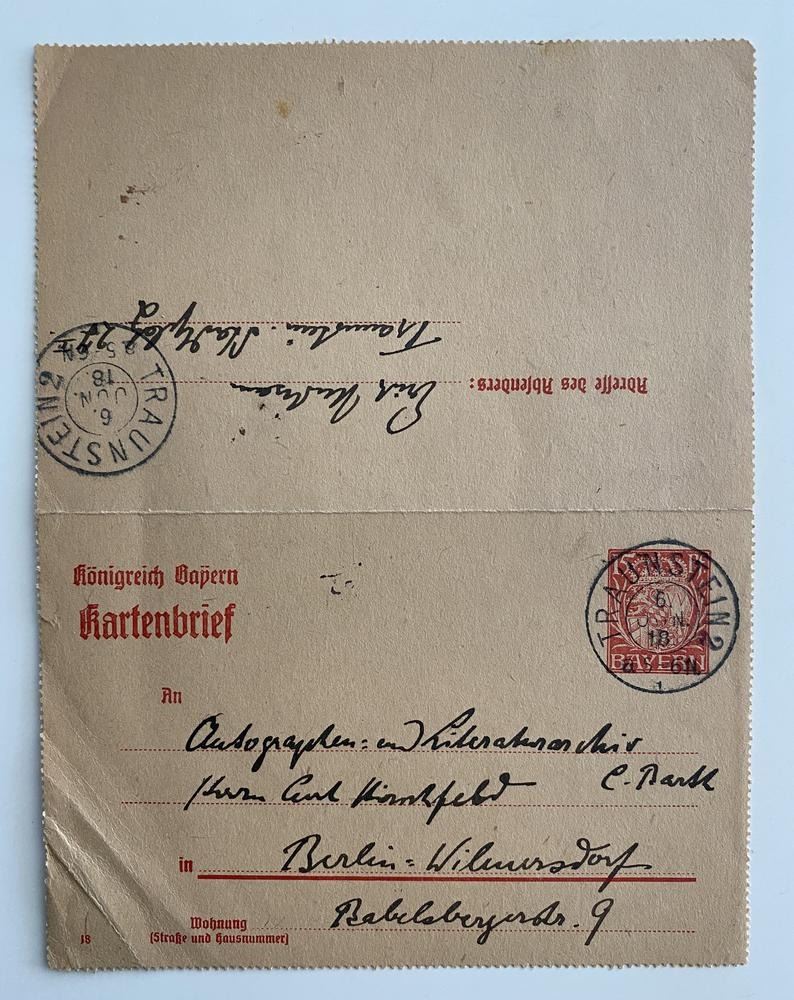 Adresse des Absenders: Erich
Traunstein. Stadtplatz
TRAUNSTEIN 2
6.
JUN.
18
5-6N.
Königreich Bayern
Kartenbrief
TRAUNSTEIN 2
6.
JUN.
18
5-6N.
1
BAYERN
An
Autographen- und Literaturarchiv
Herrn Curt Hirschfeld C. Barth
in Berlin-Wilmersdorf
Wohnung Babelsbergerstr. 9
(Straße und Hausnummer)
18